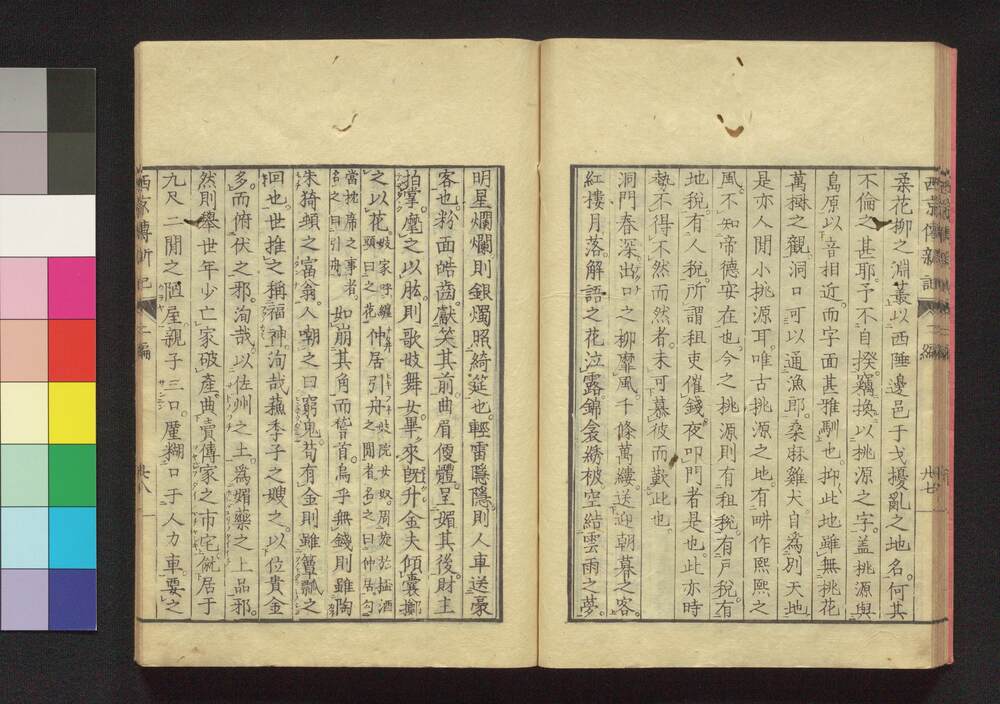 柔花柳之淵叢以西陲邊邑干戈擾亂之地名何其
不倫之甚耶予不自揆竊換以桃源之字盖桃源與
島原以音相近而字面甚雅馴也抑此地雖無桃花
萬樹之觀洞口可以通漁郎桑麻雞犬自爲別天地
是亦人間小桃源耳唯古桃源之地有畊作熙熙之
風不知帝德安在也今之桃源則有租稅有戶稅有
地稅有人稅所謂租吏催錢夜叩門者是也此亦時
勢不得不然而然者未可慕彼而歎此也
洞門春深出口之柳靡風千條萬縷送迎朝暮之客
紅樓月落解語之花泣露錦衾綉被空結雲雨之夢
明星爛爛則銀燭照綺筵也輕雷隱隱則人車送豪
客也粉面皓齒獻笑其前曲眉便體呈媚其後財主
拍掌麾之以肱則歌妓舞女畢來既升金夫傾囊擲
之以花 仲居引舟
如崩其角而瞽首烏乎無錢則雖陶
朱猗頓之富翁人嘲之曰窮鬼苟有金則雖簞瓢之
回也世推之稱福神洵哉蘇季子之嫂之以位貴金
多而俯伏之邪洵哉以佐州之土爲媚藥之上品邪
然則擧世年少亡家破產典賣傳家之市宅僦居于
九尺二間之陋屋親子三口厪糊口于人力車要之
西京傳新記 二編 廿八